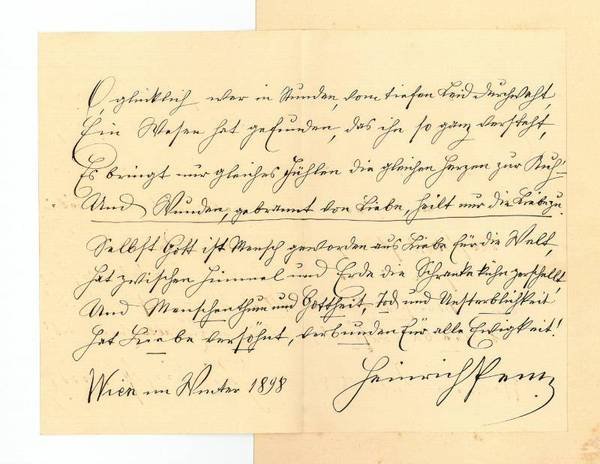 O, glücklich wer in Stunden, vom tiefen Leid durchweht,
Ein Wesen hat gefunden, das ihn so ganz versteht,
Es bringt nur gleiches Fühlen die gleichen Herzen zur Ruh'
Und Wunden, gebrannt von Liebe, heilt nur die Liebe zu.
Selbst Gott ist Mensch geworden aus Liebe für die Welt,
hat zwischen Himmel und Erde die Schranke kühn zerschellt,
Und Menschenthum und Gottheit, Tod und Unsterblichkeit
hat Liebe versöhnt, verbunden für alle Ewigkeit!
Wien im Winter 1898
Heinrich Penn